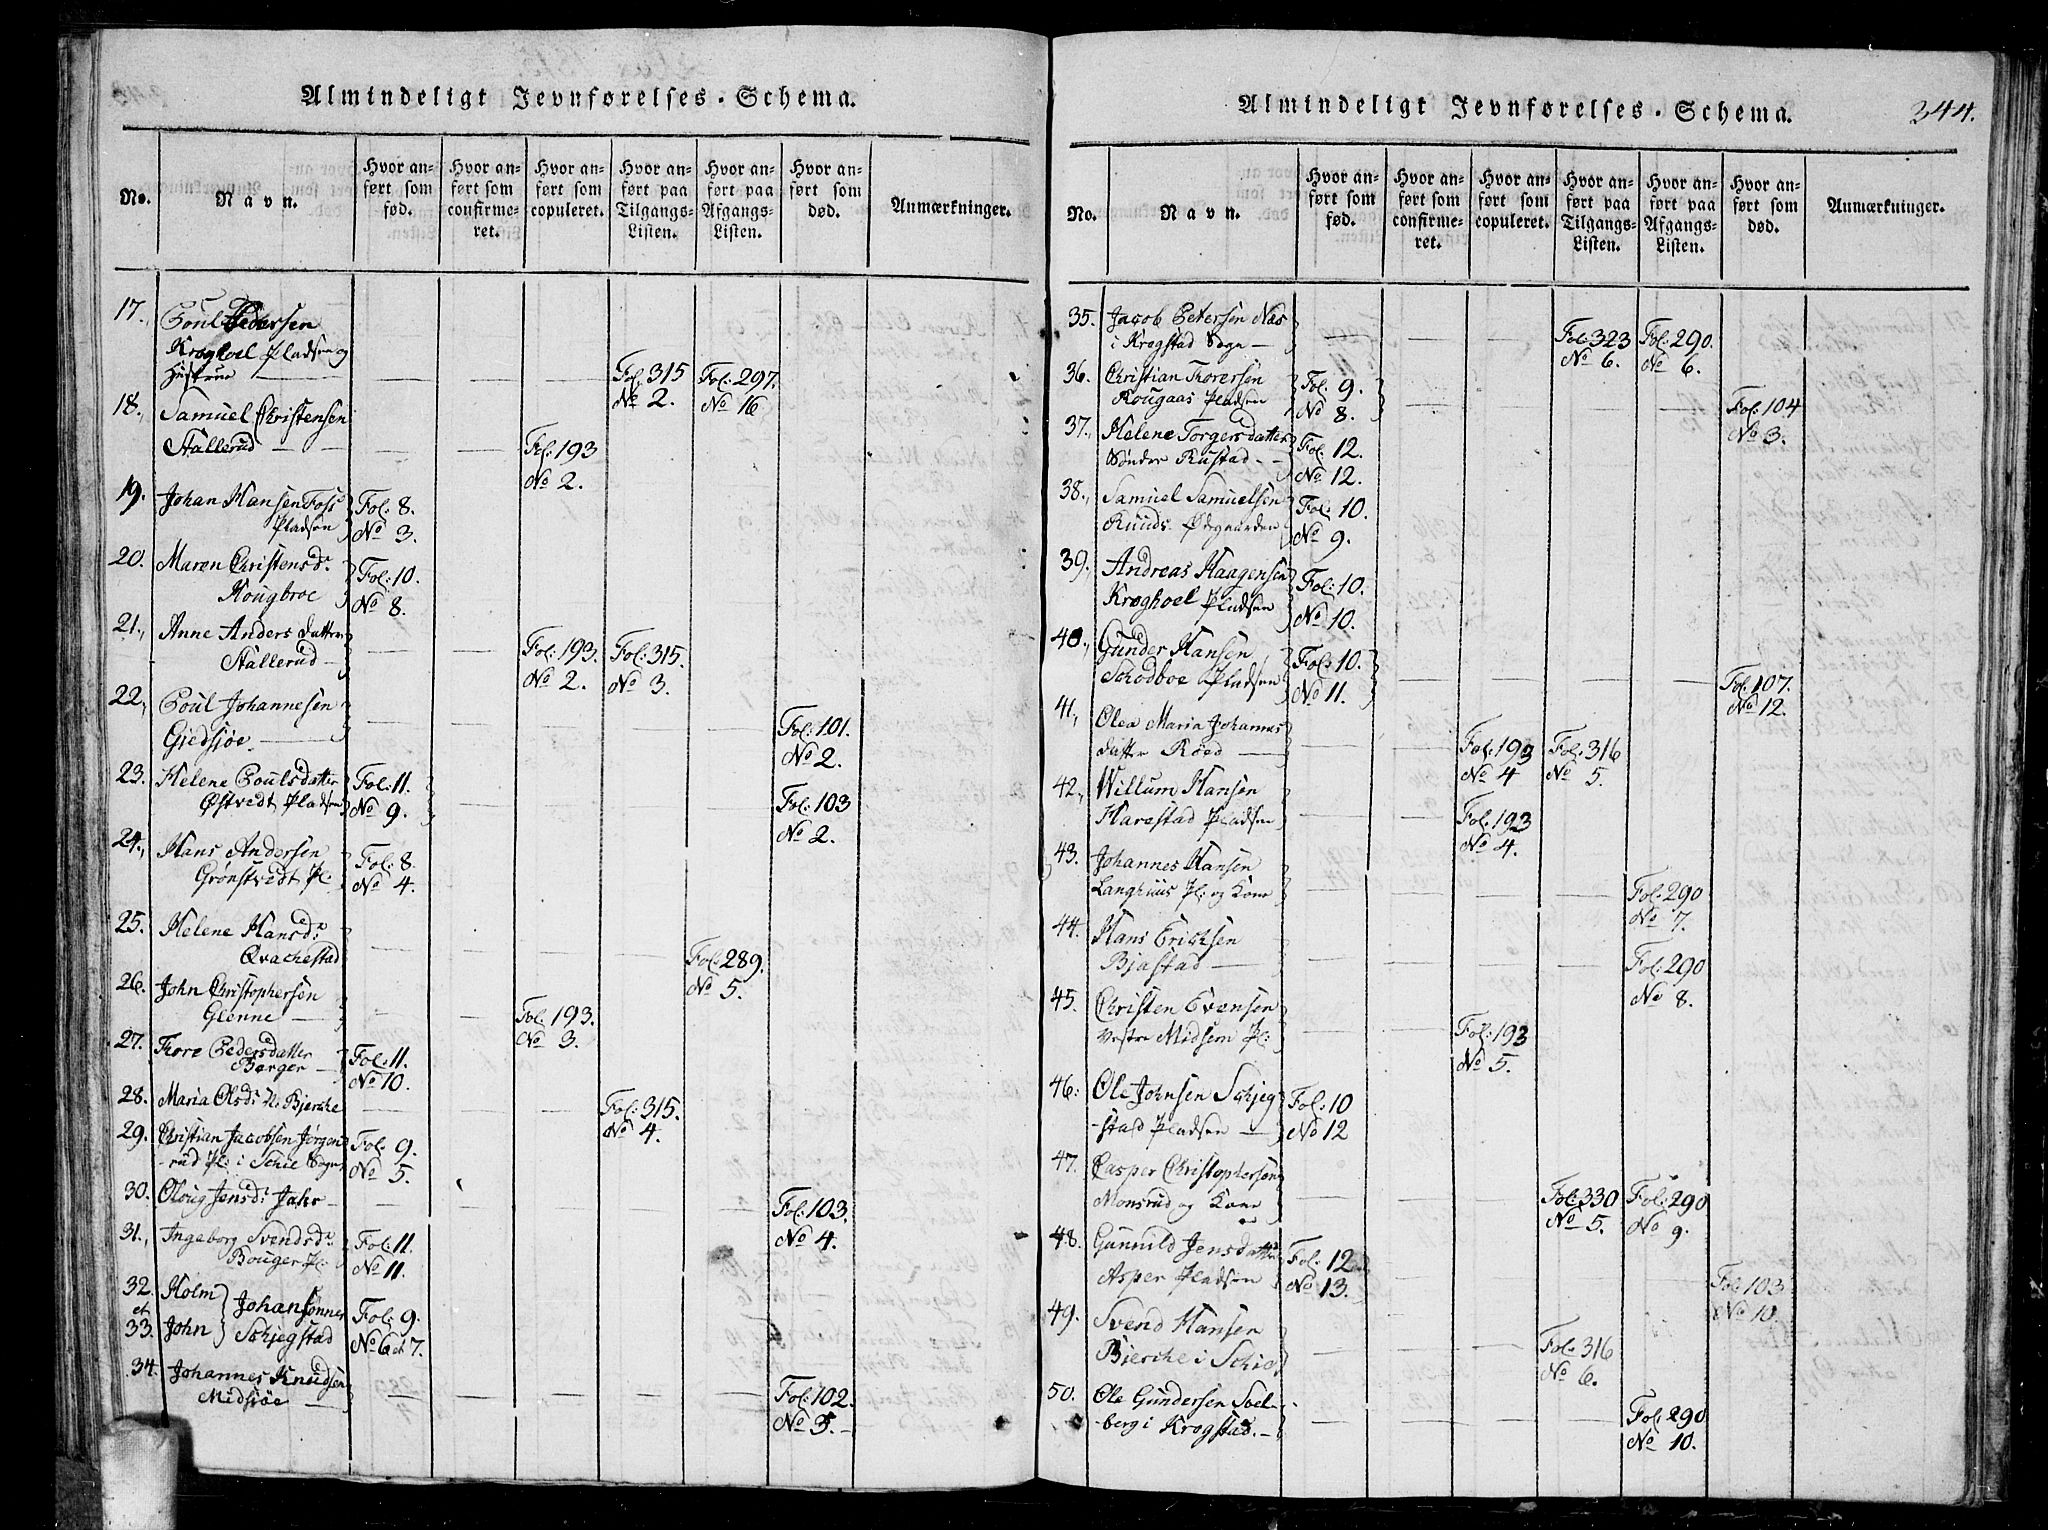 Almindeligt Jevnførelses-Schema.
No.
Navn.
Hvor an-
ført som
fød.
Hvor an-
ført som
confirme-
ret.
Hvor an-
ført som
copuleret.
Hvor an-
ført paa
Tilgangs-
Listen.
Hvor an-
ført paa
Afgangs-
Listen.
Hvor an-
ført som
død.
Anmærkninger.
17. Poul Pedersen
Kroghoel Pladsen og
Hustrue — — — — Fol: 315 Fol: 297.
No 2. No 16
18. Samuel Christensen
Stallerud — — — Fol: 193
No 2.
19. Johan Hansen Foss Fol: 8.
Pladsen No 3.
20. Maren Christensd. Fol: 10.
Kougbroe No 8.
21. Anne Anders datter
Stallerud — — — Fol: 193. Fol: 315.
No 2. No 3.
22. Poul Johannesen
Giedsjøe — — — — — — Fol: 101.
No 2.
23. Helene Poulsdatter Fol: 11.
Østvedt Pladsen No 9. Fol: 103
No 2.
24. Hans Andersen Fol: 8.
Grønstvedt Pl: No 4.
25. Helene Hansd.
Qvachestad — — — — Fol: 289.
No 5.
26. John Christophersen
Glenne — — — Fol: 193.
No 3.
27. Thore Pedersdatter Fol: 11.
Berger — No 10.
28. Maria Olsd: N. Bjerche — — — Fol: 315.
No 4.
29. Christian Jacobsen Jørgen Fol: 9.
-rud Pl: i Schie Sogn No 5.
30. Oloug Jensd: Jahr — — — — — — Fol: 103.
No 4.
31. Ingeborg Svendsd. Fol: 11.
Bouger Pl: No 11.
32. Holm } Johansønner Fol: 9.
et
33. John } Schjegstad No 6 et 7.
34. Johannes Knudsen
Midsjøe — — — — — — Fol: 102.
No 3.
Almindeligt Jevnførelses-Schema.
344.
No.
Navn.
Hvor an-
ført som
fød.
Hvor an-
ført som
confirme-
ret.
Hvor an-
ført som
copuleret.
Hvor an-
ført paa
Tilgangs-
Listen.
Hvor an-
ført paa
Afgangs-
Listen.
Hvor an-
ført som
død.
Anmærkninger.
35. Jacob Petersen Næs
i Krogstad Sogn — — — — Fol: 323 Fol: 290.
No 6. No 6.
36. Christian Thorersen Fol: 9.
Kougaas Pladsen No 8. — — — — Fol: 104
No 3.
37. Helene Torgersdatter Fol: 12.
Sønder Rustad — No 12.
38. Samuel Samuelsen Fol: 10.
Ruuds Ødegaarden No 9.
39. Andreas Haagensen Fol: 10.
Kroghoel Pladsen No 10.
40. Gunder Hansen Fol: 10.
Schodboe Pladsen No 11. — — — — Fol: 107.
No 12.
41. Olea Maria Johannes
datter Røed — — — Fol: 193 Fol: 316
No 4 No 5.
42. Willum Hansen
Harestad Pladsen — — Fol: 193
No 4.
43. Johannes Hansen
Langhuus Pl: og Kone — — — — Fol: 290
No 7.
44. Hans Erichsen
Bjastad — — — — — Fol: 290
No 8.
45. Christen Evensen
Vestre Midsem Pl: — — Fol: 193
No 5.
46. Ole Johnsen Schjeg Fol: 10
-stad Pladsen — No 12
47. Casper Christophersen
Monsrud og Kone — — — Fol: 330 Fol: 290
No 5. No 9.
48. Gunnild Jensdatter Fol: 12
Asper Pladsen No 13. — — — — Fol: 103
No 10.
49. Svend Hansen
Bierche i Schie — — — Fol: 316
No 6.
50. Ole Gundersen Soel-
-berg i Krogstad. — — — — Fol: 290
No 10.